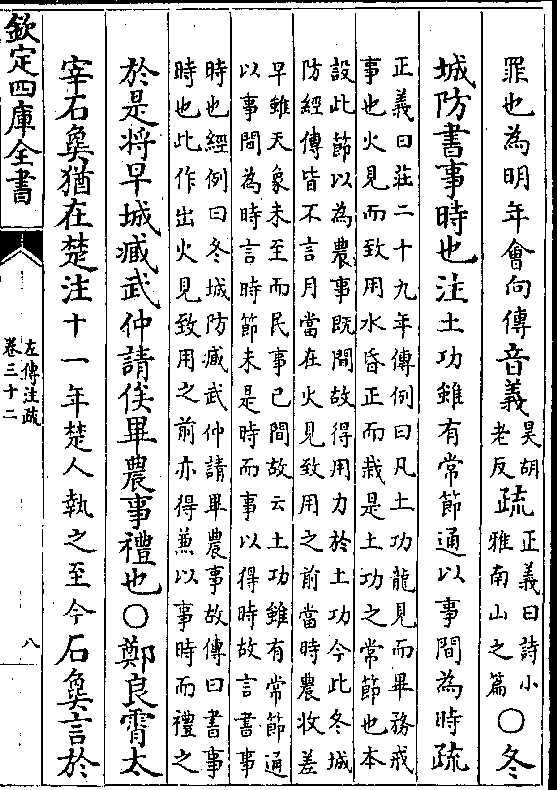 罪也為明年會向傳音義昊胡老反疏正義曰詩小雅南山之篇〇冬
城防書事時也注土功雖有常節通以事間為時疏
正義曰莊二十九年傳例曰凡土功龍見而畢務戒
事也火見而致用水昏正而栽是土功之常節也本
設此節以為農事既間故得用力於土功今此冬城
防經傳皆不言月當在火見致用之前當時農收差
早雖天象未至而民事已間故云土功雖有常節通
以事間為時言時節未是時而事以得時故言書事
時也經例曰冬城防臧武仲請畢農事故傳曰書事
時也此作出火見致用之前亦得兼以事時而禮之
於是将早城臧武仲請俟畢農事禮也〇鄭良霄太
宰石㚟猶在楚注十一年楚人執之至今石㚟言於
欽定四庫全書
左傳注疏
卷三十二
八